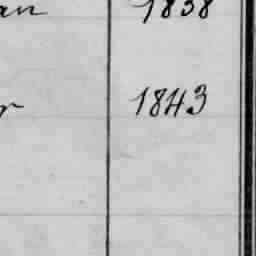 an 1838
r 1843